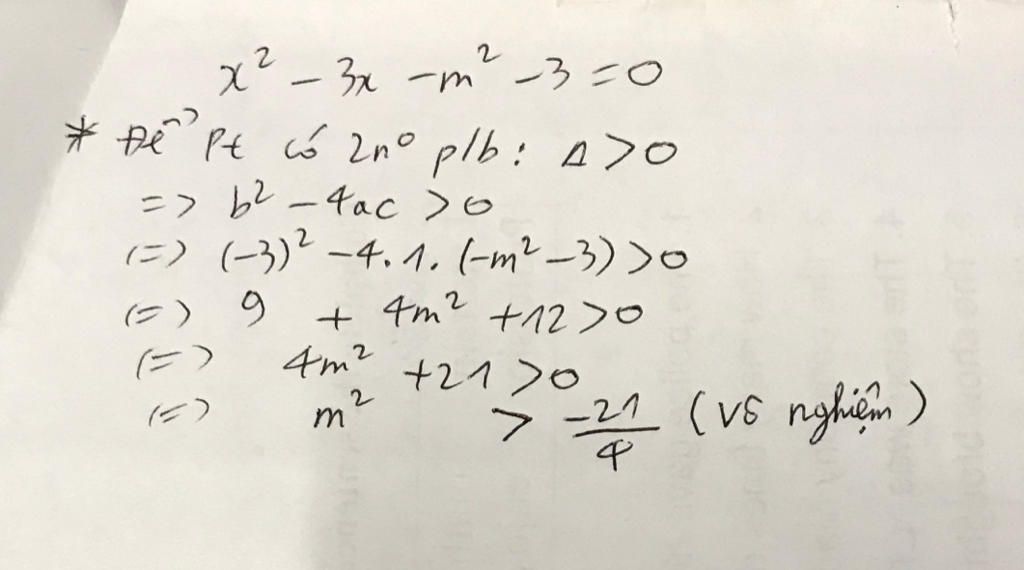 x² - 3x - m² - 3 = 0
* Để pt có 2n⁰ p/b: Δ > 0
=> b² - 4ac > 0
(=) (-3)² - 4.1.(-m² - 3) > 0
(=) 9 + 4m² + 12 > 0
(=) 4m² + 21 > 0
(=) m² > -21/4 (vô nghiệm)